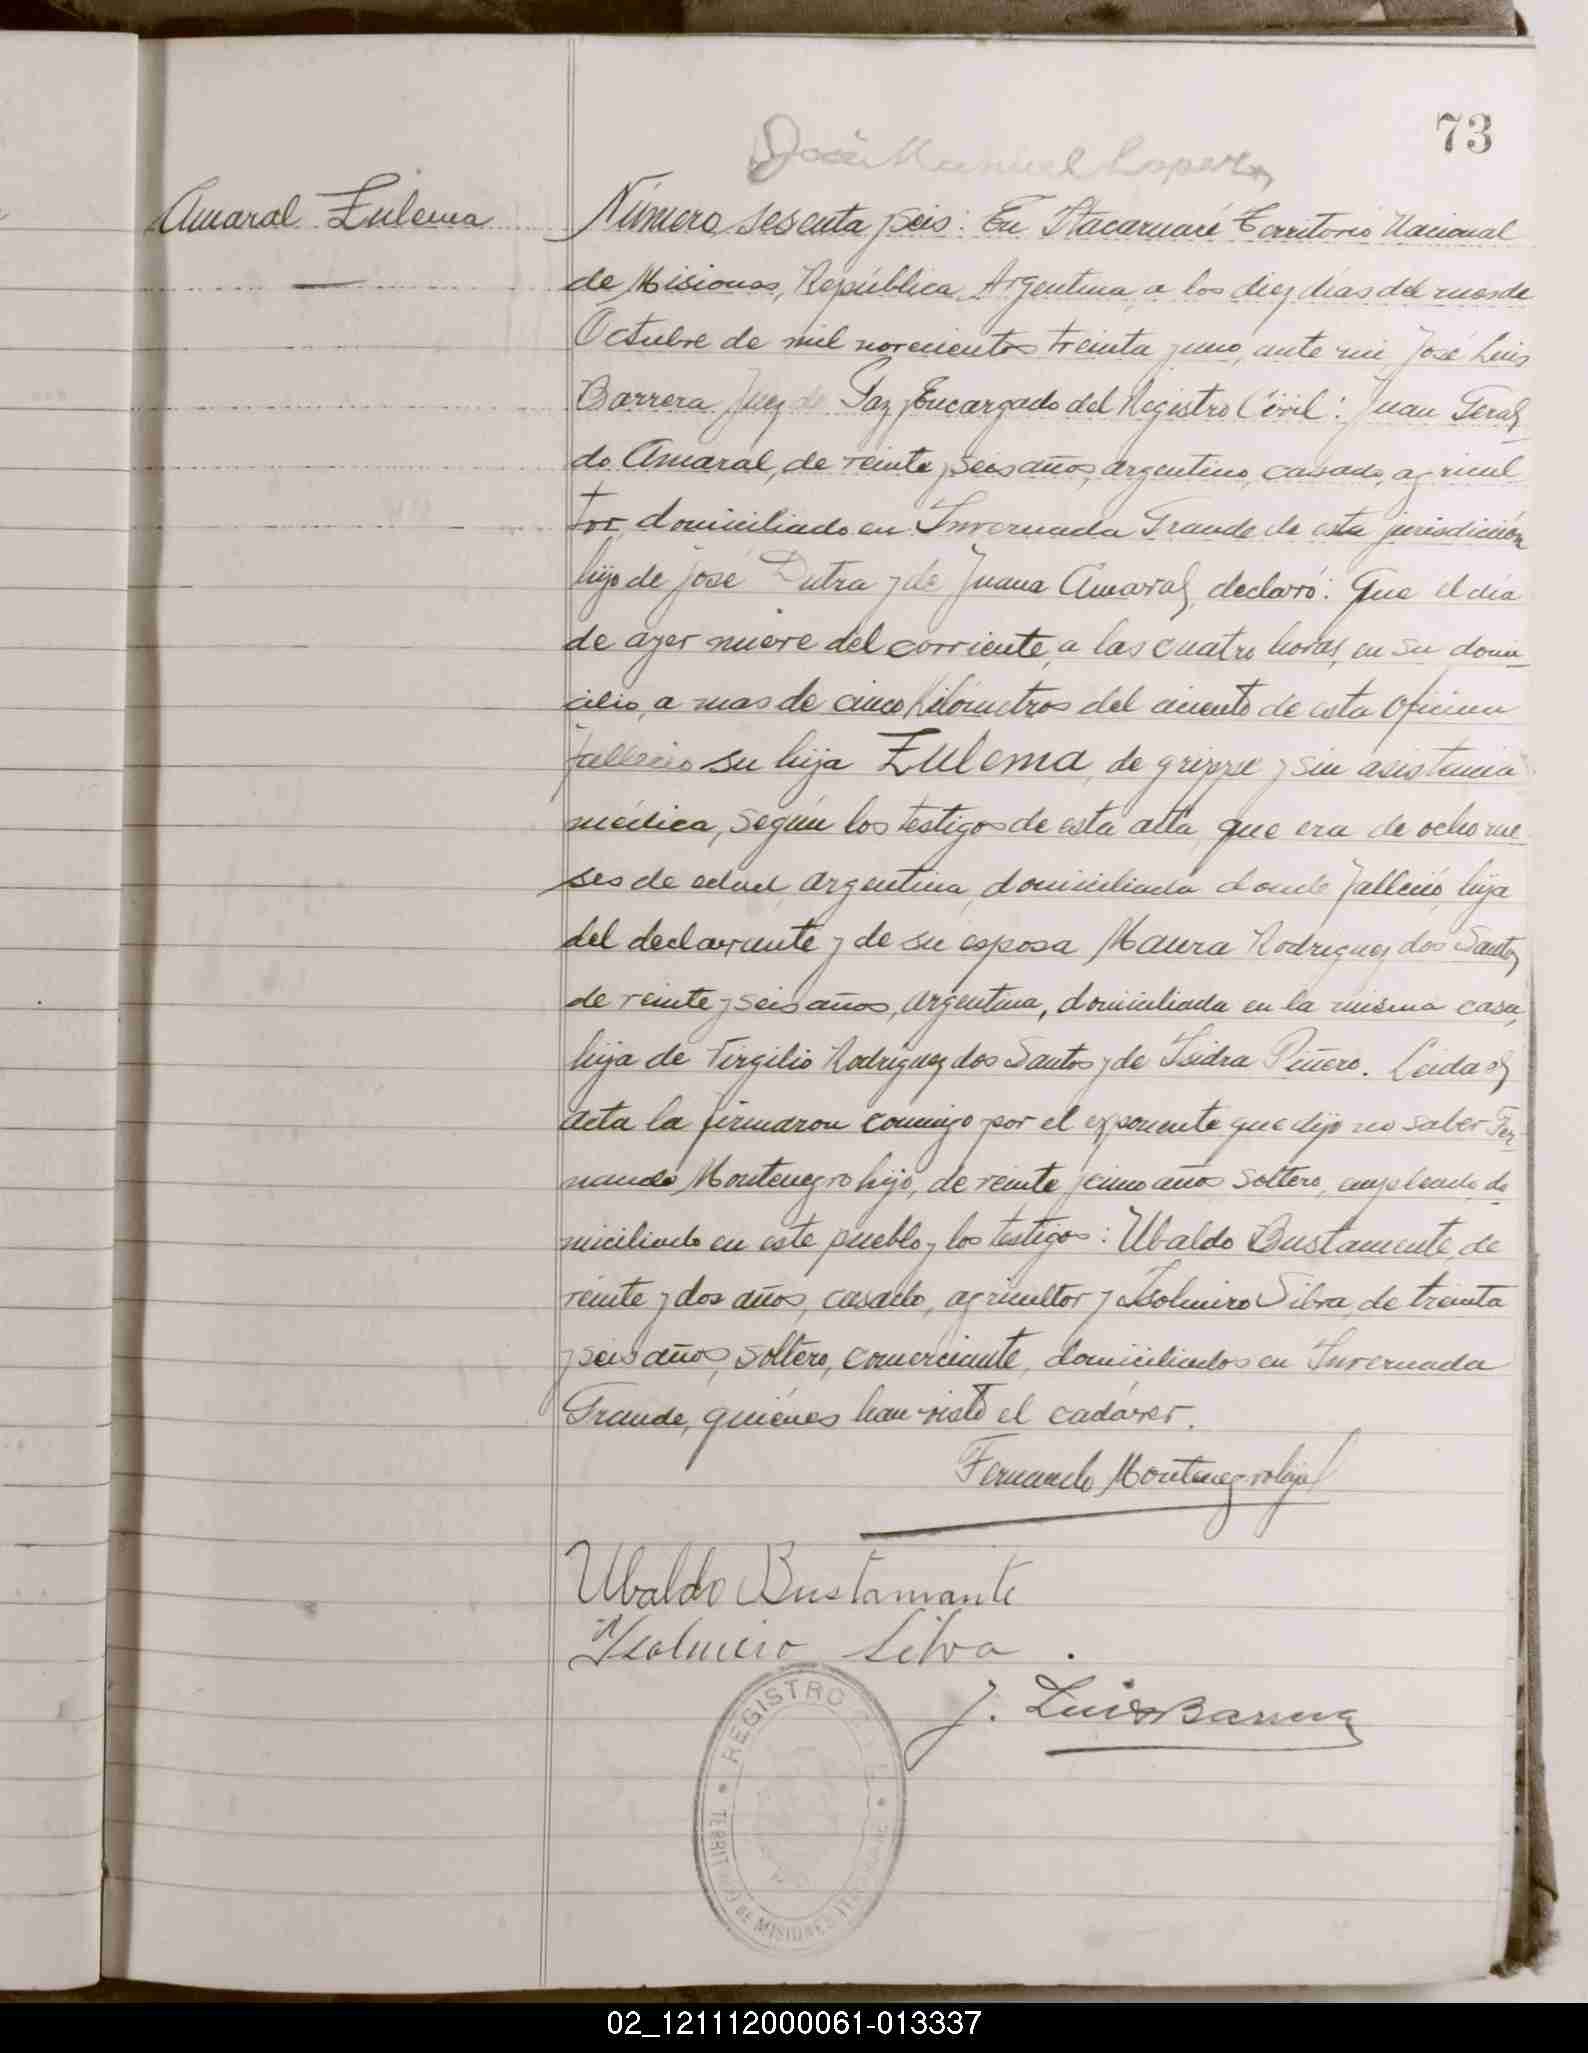 73
José Manuel Lopez
Amaral Zulema
Número sesenta y seis: En Itacaruaré Territorio Nacional
de Misiones, República Argentina, a los diez días del mes de
Octubre de mil novecientos treinta y uno, ante mi, José Luis
Barrera Juez de Paz y Encargado del Registro Civil: Juan Geral-
do Amaral, de veinte y seis años, argentino, casado, agricul
tor, domiciliado en Invernada Grande de esta jurisdicción
hijo de José Dutra y de Juana Amaral, declaró: Que el día
de ayer nueve del corriente, a las cuatro horas, en su domi-
cilio, a mas de cinco kilómetros del asiento de esta oficina
falleció su hija Zulema, de grippe y sin asistencia
médica, según los testigos de esta acta, que era de ocho me-
ses de edad, argentina, domiciliada donde falleció, hija
del declarante y de su esposa Maura Rodriguez dos Santos,
de veinte y seis años, argentina, domiciliada en la misma casa,
hija de Virgilio Rodriguez dos Santos y de Isidra Piñero. Leida el
acta la firmaron conmigo por el exponente que dijo no saber Fer-
nando Montenegro hijo, de veinte y cinco años soltero, empleado, do-
miciliado en este pueblo y los testigos: Ubaldo Bustamente, de
veinte y dos años, casado, agricultor y Isolmiro Silva, de treinta
y seis años, soltero, comerciante, domiciliados en Invernada
Grande, quiénes han visto el cadáver.
Fernando Montenegro hijo
Ubaldo Bustamante
Isolmiro Silva.
J. Luis Barrera
REGISTRO
TERRITORIO DE MISIONES
02_121112000061-013337